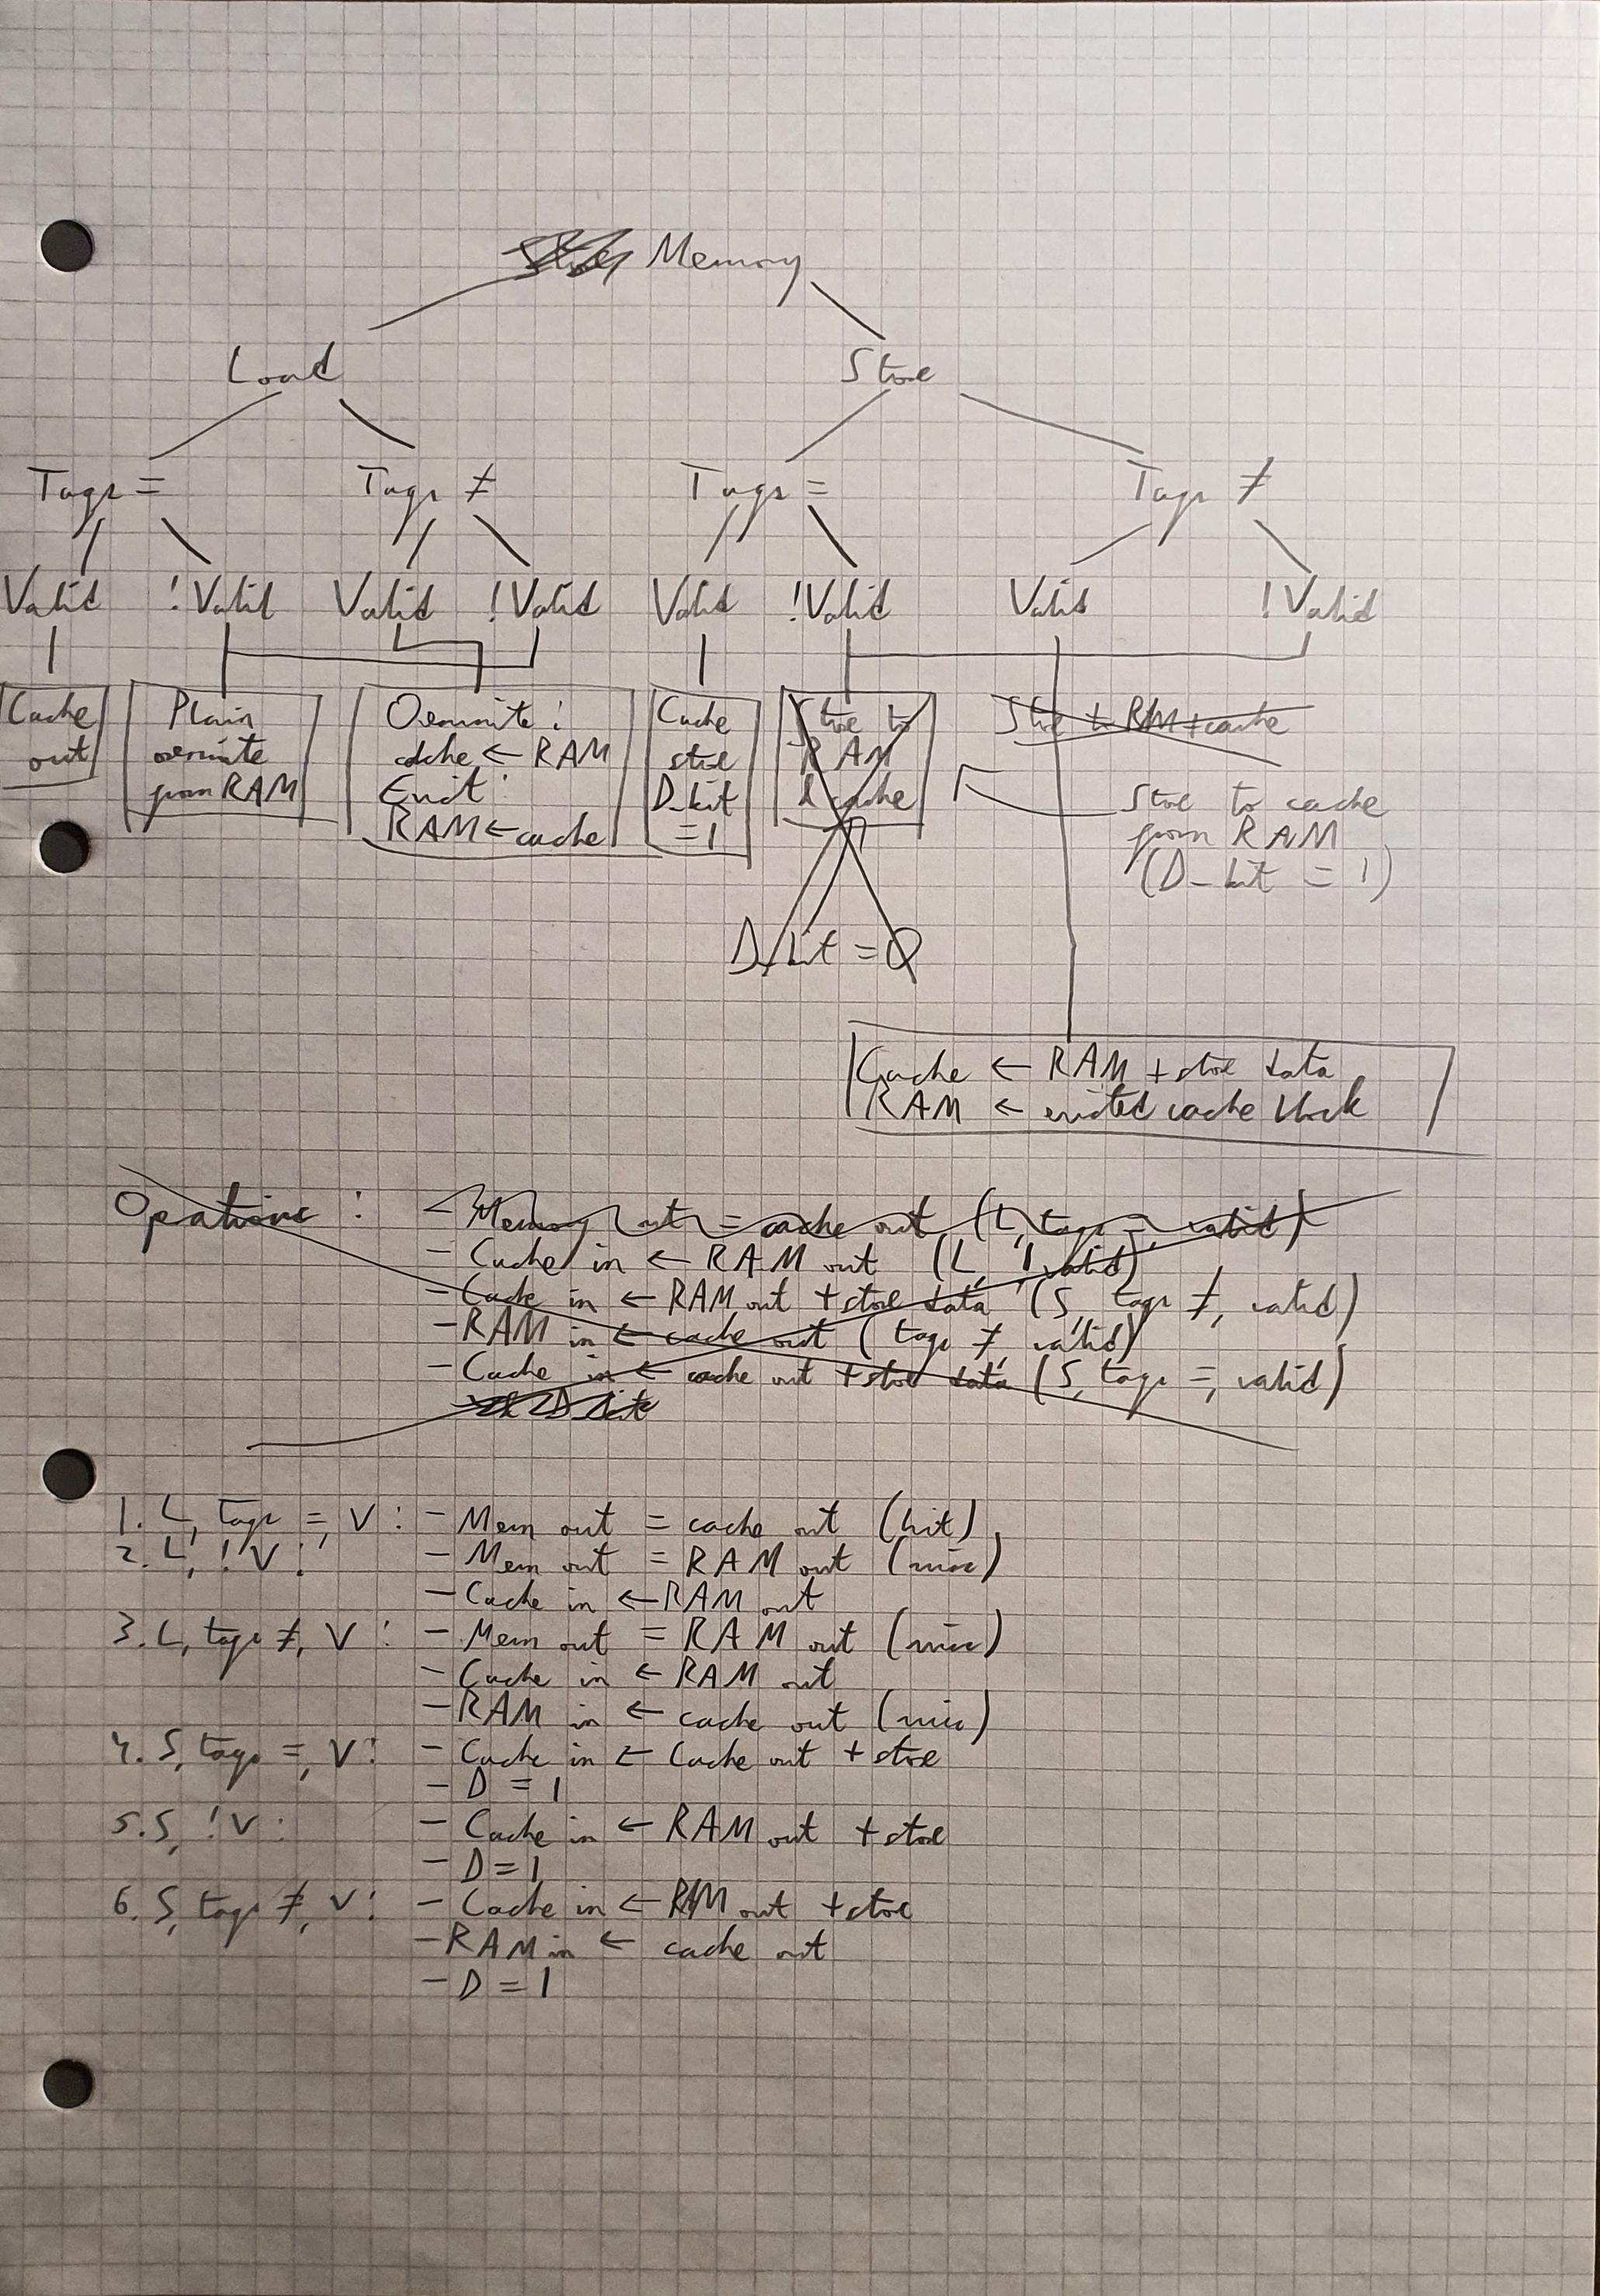 Memory
Load Store
Tags = Tags ≠ Tags = Tags ≠
Valid !Valid Valid !Valid Valid !Valid Valid !Valid
Cache
out
Plain
overwrite
from RAM
Overwrite:
cache ← RAM
Evict:
RAM ← cache
Cache
store
D_bit
= 1
Store to
RAM
& cache
D_bit = 0
Store to RAM + cache
Store to cache
from RAM
(D_bit = 1)
Cache ← RAM + store data
RAM ← evicted cache block
Operations: - Memory out = cache out (L, tags =, valid)
- Cache in ← RAM out (L, !valid)
- Cache in ← RAM out + store data (S, tags ≠, valid)
- RAM in ← cache out (tags ≠, valid)
- Cache in ← cache out + store data (S, tags =, valid)
1. L, tags =, V: - Mem out = cache out (hit)
2. L, !V: - Mem out = RAM out (miss)
- Cache in ← RAM out
3. L, tags ≠, V: - Mem out = RAM out (miss)
- Cache in ← RAM out
- RAM in ← cache out (miss)
4. S, tags =, V: - Cache in ← Cache out + store
- D = 1
5. S, !V: - Cache in ← RAM out + store
- D = 1
6. S, tags ≠, V: - Cache in ← RAM out + store
- RAM in ← cache out
- D = 1